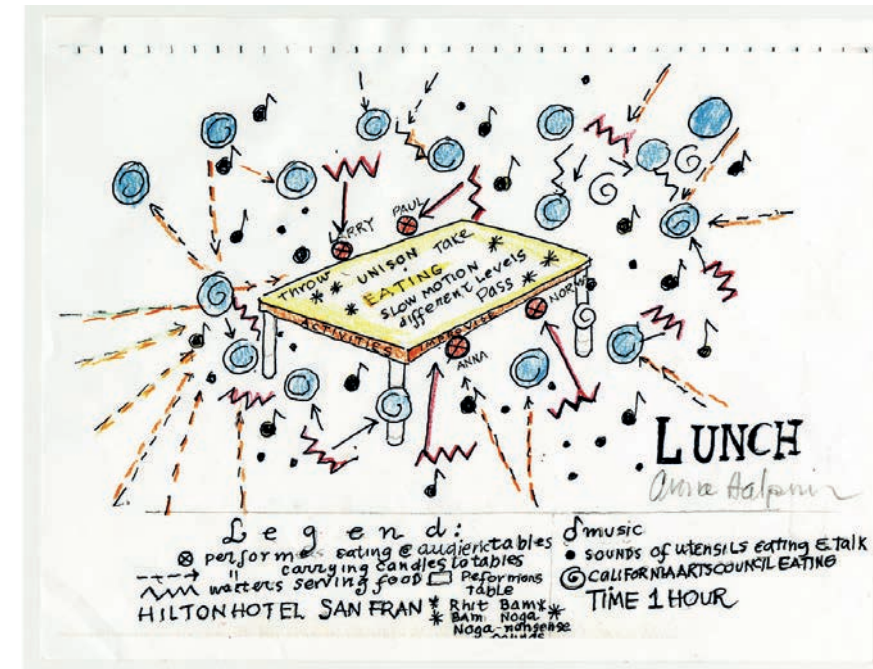 LARRY
PAUL
Throw UNISON Take
EATING
SLOW MOTION
different Levels
Pass
ACTIVITIES IMPROVISE
NORM
ANNA
LUNCH
Anna Halprin
Legend:
performers eating @ audience tables
" carrying candles to tables
waiters serving food
Performers
Table
HILTON HOTEL SAN FRAN
Rhit Bam
Bam Noga
Noga-nonsense
music
SOUNDS of utensils eating & Talk
CALIFORNIA ARTS COUNCIL EATING
TIME 1 HOUR